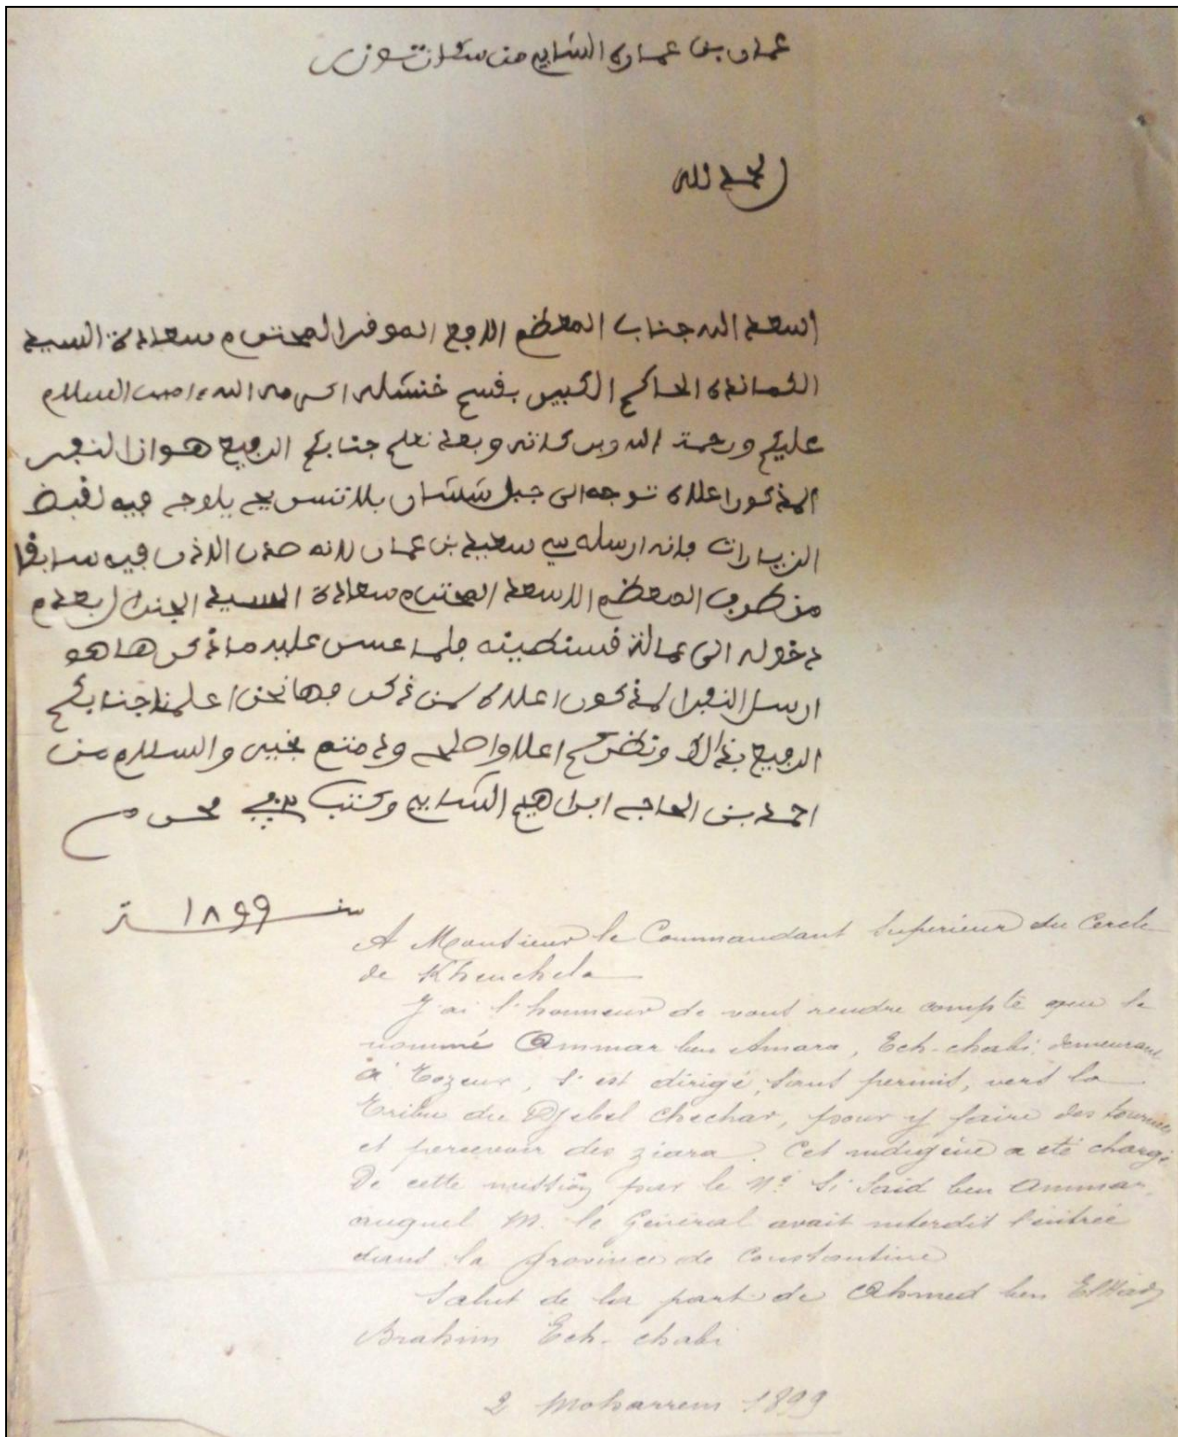 عمار بن عمارة الشابي من سكان توزر
الحمد لله
اسعد الله جناب المعظم الارفع الموقر المحترم سعادة السيد
الكمانده الحاكم الكبير بقسم خنشله اكرمه الله امين السلام
عليكم ورحمة الله وبركاته وبعد نعلم جنابكم الرفيع هو ان النفر
المذكور اعلاه توجه الى جبل ششار بلا تسريح يلوج فيه لقبض
الزيارات فانه ارسله سي سعيد بن عمار لانه صدر الاذن فيه سابقا
من طرف المعظم الاسعد المحترم سعادة السيد الجنرال بعدم
دخوله الى عمالة قسنطينه فلما عسر عليه ما ذكر ها هو
ارسل النفر المذكور اعلاه كمن ذكر فها نحن اعلمنا جنابكم
الرفيع بذالك ونضركم اعلا واصلح ودمتم بخير والسلام من
احمد بن الحاج ابراهيم الشابي وكتب في محرم
سنة ١٨99
A Monsieur le Commandant Supérieur du Cercle
de Khenchela
J'ai l'honneur de vous rendre compte que le
nommé Ammar ben Amara, Ech-chabi, demeurant
à Tozeur, s'est dirigé, sans permis, vers la
tribu du Djebel Chechar, pour y faire des tournées
et percevoir des ziara. Cet indigène a été chargé
de cette mission par le Né Si Said ben Ammar,
auquel M. le Général avait interdit l'entrée
dans la province de Constantine
Salut de la part de Ahmed ben El Hadj
Brahim Ech-chabi
2 Moharrem 1899